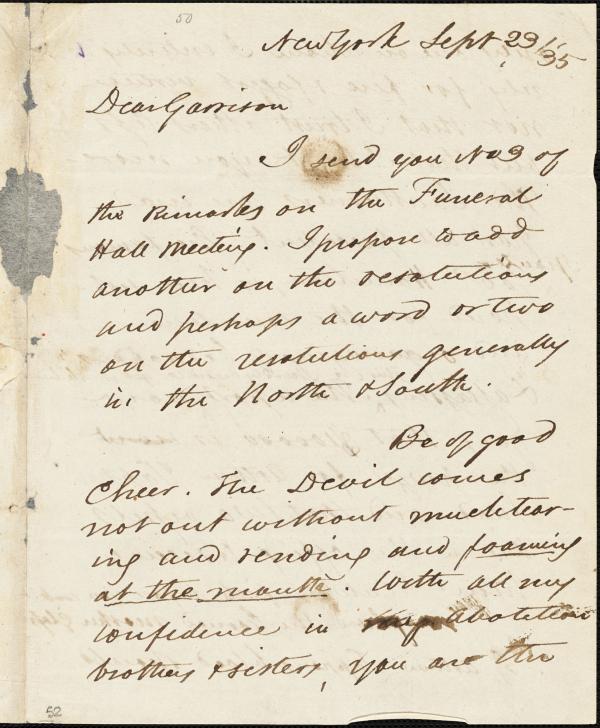 50
New York Sept 23/35
Dear Garrison
I send you No 3 of
the Remarks on the Funeral
Hall Meeting. I propose to add
another on the resolutions
and perhaps a word or two
on the resolutions generally
in the North & South.
Be of good
Cheer. The Devil comes
not out without much tear-
ing and rending and foaming
at the mouth. With all my
confidence in abolition
brothers & sisters, you are the
52